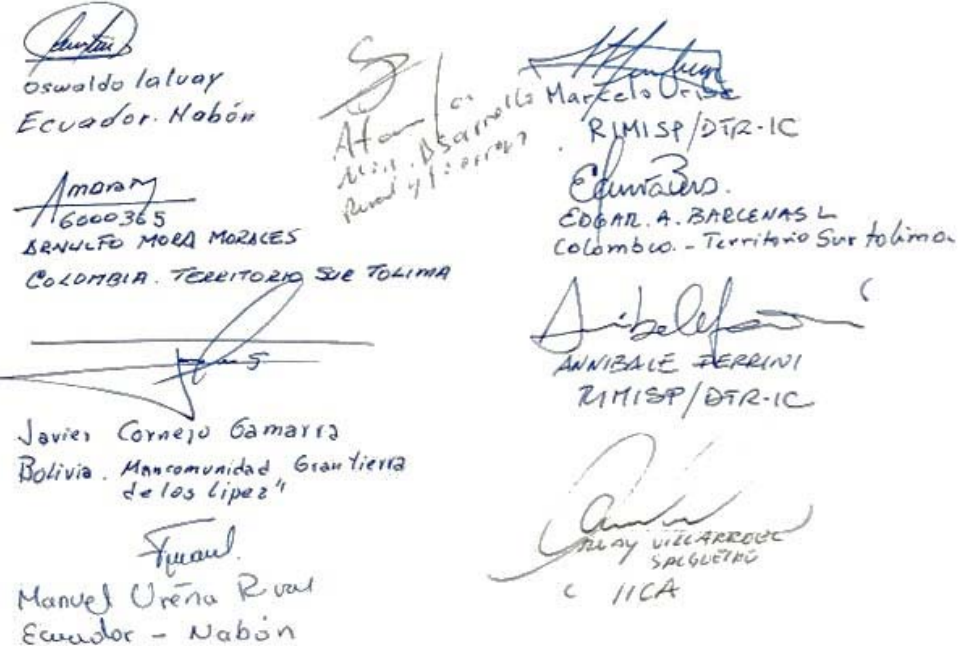 Oswaldo Laluay
Ecuador. Nabón
6000365
ARNULFO MORA MORALES
COLOMBIA. TERRITORIO SUR TOLIMA
Javier Cornejo Gamarra
Bolivia. Mancomunidad Gran tierra
de los Lipez"
Manuel Ureña R
Ecuador - Nabón
Min. Dsarrollo
Rural y tierras
Marcelo Uribe
RIMISP/DTR-IC
EDGAR. A. BARCENAS L
Colombia. - Territorio Sur tolima.
ANNIBALE FERRINI
RIMISP/DTR-IC
VILLARROEL
IICA